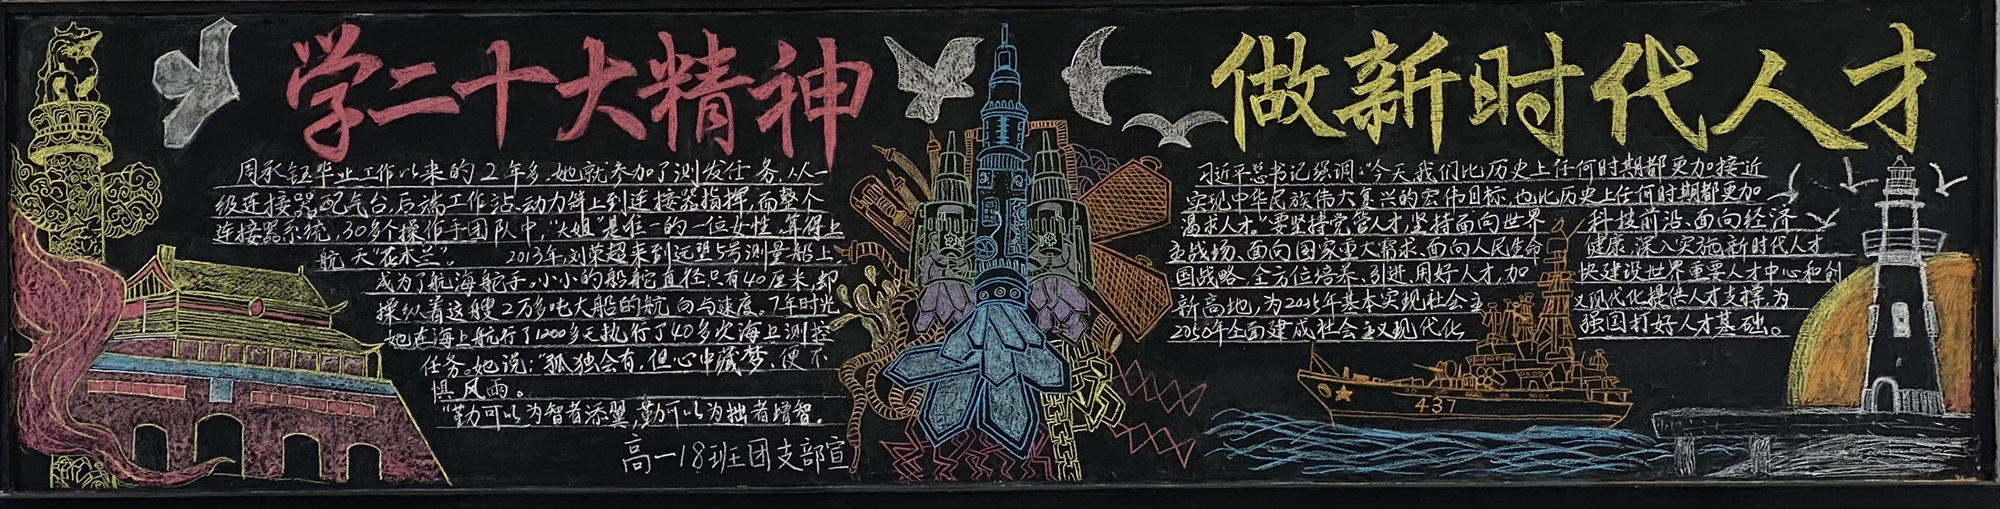 学二十大精神
周承钰毕业工作以来的2年多,她就参加了测发任务,从一
级连接器配气台,后端工作站,动力链上到连接器指挥,而整个
连接器系统,30多个操作手团队中,“大姐”是唯一的一位女性,算得上
航天“花木兰”。 2013年,刘荣超来到远望5号测量船上,
成为了航海舵手。小小的船舵直径只有40厘米,却
操纵着这艘2万多吨大船的航向与速度。7年时光
她在海上航行了1200多天执行了40多次海上测控
任务。她说:“孤独会有,但心中藏梦,便不
惧风雨。
“勤可以为智者添翼,勤可以为拙者增智。
高一18班团支部宣
做新时代人才
习近平总书记强调:“今天,我们比历史上任何时期都更加接近
实现中华民族伟大复兴的宏伟目标,也比历史上任何时期都更加
渴求人才。”要坚持党管人才,坚持面向世界科技前沿、面向经济
主战场、面向国家重大需求、面向人民生命健康,深入实施新时代人才
国战略,全方位培养、引进、用好人才,加快建设世界重要人才中心和创
新高地,为2025年基本实现社会主义现代化提供人才支撑,为
2050年全面建成社会主义现代化强国打好人才基础。
437